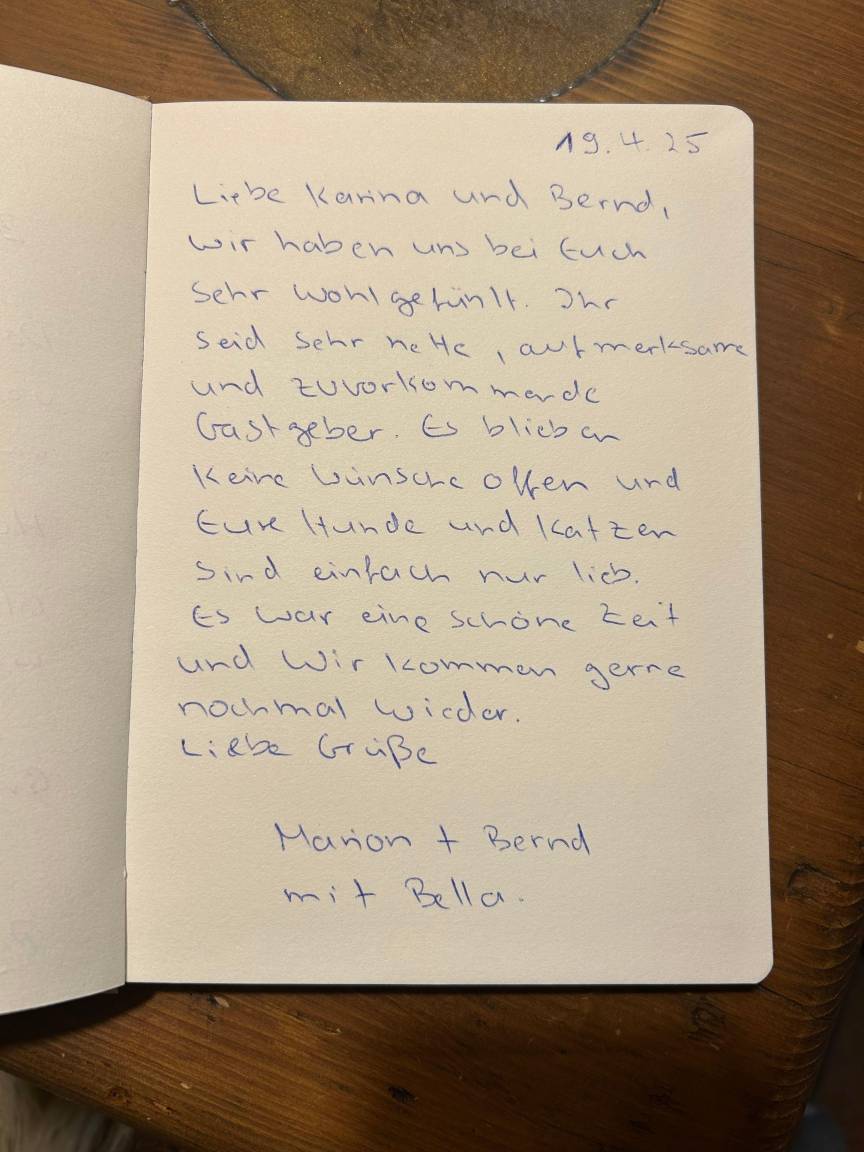 19.4.25
Liebe Karina und Bernd,
wir haben uns bei Euch
sehr wohlgefühlt. Ihr
seid sehr nette, aufmerksame
und zuvorkommende
Gastgeber. Es blieben
keine Wünsche offen und
Eure Hunde und Katzen
sind einfach nur lieb.
Es war eine schöne Zeit
und wir kommen gerne
nochmal wieder.
Liebe Grüße
Marion + Bernd
mit Bella.